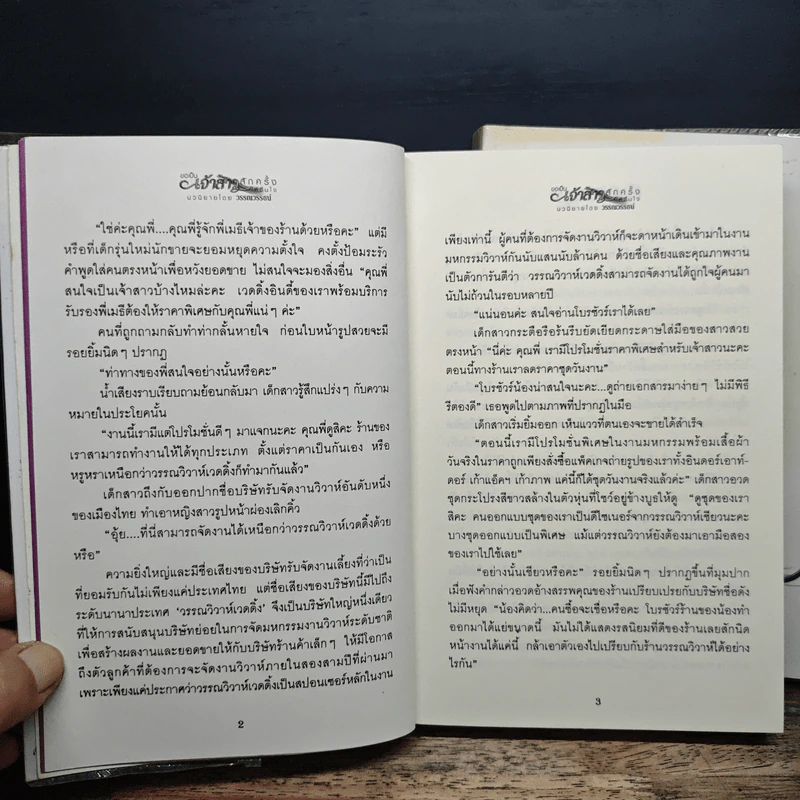 ขอเป็น
เจ้าสาว
สักครั้ง
นวนิยายโดย วรรณวรรธน์
“ใช่ค่ะคุณพี่....คุณพี่รู้จักพี่เมธีเจ้าของร้านด้วยหรือคะ” แต่มี
หรือที่เด็กรุ่นใหม่นักขายจะยอมหยุดความตั้งใจ คงตั้งป้อมระรัว
คำพูดใส่คนตรงหน้าเพื่อหวังยอดขาย ไม่สนใจจะมองสิ่งอื่น “คุณพี่
สนใจเป็นเจ้าสาวบ้างไหมล่ะคะ เวดดิ้งอินดี้ของเราพร้อมบริการ
รับรองพี่เมธีต้องให้ราคาพิเศษกับคุณพี่แน่ๆ ค่ะ”
คนที่ถูกถามกลับทำท่ากลั้นหายใจ ก่อนใบหน้ารูปสวยจะมี
รอยยิ้มนิดๆ ปรากฏ
“ท่าทางของพี่สนใจอย่างนั้นหรือคะ”
น้ำเสียงราบเรียบถามย้อนกลับมา เด็กสาวรู้สึกแปร่งๆ กับความ
หมายในประโยคนั้น
“งานนี้เรามีแต่โปรโมชั่นดีๆ มาแจกนะคะ คุณพี่ดูสิคะ ร้านของ
เราสามารถทำงานให้ได้ทุกประเภท ตั้งแต่ราคาเป็นกันเอง หรือ
หรูหราเหนือกว่าวรรณวิวาห์เวดดิ้งก็ทำมากันแล้ว”
เด็กสาวถึงกับออกปากชื่อบริษัทรับจัดงานวิวาห์อันดับหนึ่ง
ของเมืองไทย ทำเอาหญิงสาวรูปหน้าผ่องเลิกคิ้ว
“อุ้ย....ที่นี่สามารถจัดงานได้เหนือกว่าวรรณวิวาห์เวดดิ้งด้วย
หรือ”
ความยิ่งใหญ่และมีชื่อเสียงของบริษัทรับจัดงานเลี้ยงที่ว่าเป็น
ที่ยอมรับกันไม่เพียงแค่ประเทศไทย แต่ชื่อเสียงของบริษัทนี้มีไปถึง
ระดับนานาประเทศ ‘วรรณวิวาห์เวดดิ้ง’ จึงเป็นบริษัทใหญ่หนึ่งเดียว
ที่ให้การสนับสนุนบริษัทย่อยในการจัดมหกรรมงานวิวาห์ระดับชาติ
เพื่อสร้างผลงานและยอดขายให้กับบริษัทร้านค้าเล็กๆ ให้มีโอกาส
ถึงตัวลูกค้าที่ต้องการจะจัดงานวิวาห์ภายในสองสามปีที่ผ่านมา
เพราะเพียงแค่ประกาศว่าวรรณวิวาห์เวดดิ้งเป็นสปอนเซอร์หลักในงาน
2
ขอเป็น
เจ้าสาว
สักครั้ง
นวนิยายโดย วรรณวรรธน์
เพียงเท่านี้ ผู้คนที่ต้องการจัดงานวิวาห์ก็จะดาหน้าเดินเข้ามาในงาน
มหกรรมวิวาห์กันนับแสนนับล้านคน ด้วยชื่อเสียงและคุณภาพงาน
เป็นตัวการันตีว่า วรรณวิวาห์เวดดิ้งสามารถจัดงานได้ถูกใจผู้คนมา
นับไม่ถ้วนในรอบหลายปี
“แน่นอนค่ะ สนใจอ่านโบรชัวร์เราได้เลย”
เด็กสาวกระตือรือร้นรีบยัดเยียดกระดาษใส่มือของสาวสวย
ตรงหน้า “นี่ค่ะ คุณพี่ เรามีโปรโมชั่นราคาพิเศษสำหรับเจ้าสาวนะคะ
ตอนนี้ทางร้านเราลดราคาชุดวันงาน”
“โบรชัวร์น้องน่าสนใจนะคะ...ดูถ่ายเอกสารมาง่ายๆ ไม่มีพิธี
รีตองดี” เธอพูดไปตามภาพที่ปรากฏในมือ
เด็กสาวเริ่มยิ้มออก เห็นแววที่ตนเองจะขายได้สำเร็จ
“ตอนนี้เรามีโปรโมชั่นพิเศษในงานมหกรรมพร้อมเสื้อผ้า
วันจริงในราคาถูกเพียงสั่งซื้อแพ็คเกจถ่ายรูปของเราทั้งอินดอร์เอาท์-
ดอร์ เก้าแอ็คฯ เก้าภาพ แค่นี้ก็ได้ชุดวันงานจริงแล้วค่ะ” เด็กสาวอวด
ชุดกระโปรงสีขาวสล้างในตัวหุ่นที่โชว์อยู่ข้างบูธให้ดู “ดูชุดของเรา
สิคะ คนออกแบบชุดของเราเป็นดีไซเนอร์จากวรรณวิวาห์เชียวนะคะ
บางชุดออกแบบเป็นพิเศษ แม้แต่วรรณวิวาห์ยังต้องมาเอามือสอง
ของเราไปใช้เลย”
“อย่างนั้นเชียวหรือคะ” รอยยิ้มนิดๆ ปรากฏขึ้นที่มุมปาก
เมื่อฟังคำกล่าวอวดอ้างสรรพคุณของร้านเปรียบเปรยกับบริษัทชื่อดัง
ไม่มีหยุด “น้องคิดว่า...คนซื้อจะเชื่อหรือคะ โบรชัวร์ร้านของน้องทำ
ออกมาได้แย่ขนาดนี้ มันไม่ได้แสดงรสนิยมที่ดีของร้านเลยสักนิด
หน้างานได้แค่นี้ กล้าเอาตัวเองไปเปรียบกับร้านวรรณวิวาห์ได้อย่าง
ไรกัน”
3